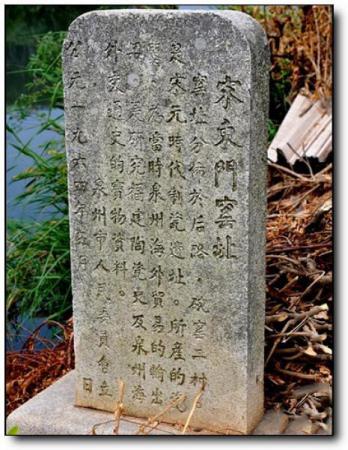 宋東門窑址
窑址分佈於后路,碗窑二村。
是宋元時代制瓷遺址。所產的瓷
器為當時泉州海外貿易的輸出
品,是研究福建陶瓷史及泉州海
外交通史的實物資料。
泉州市人民委員會立
公元一九六四年 月 日